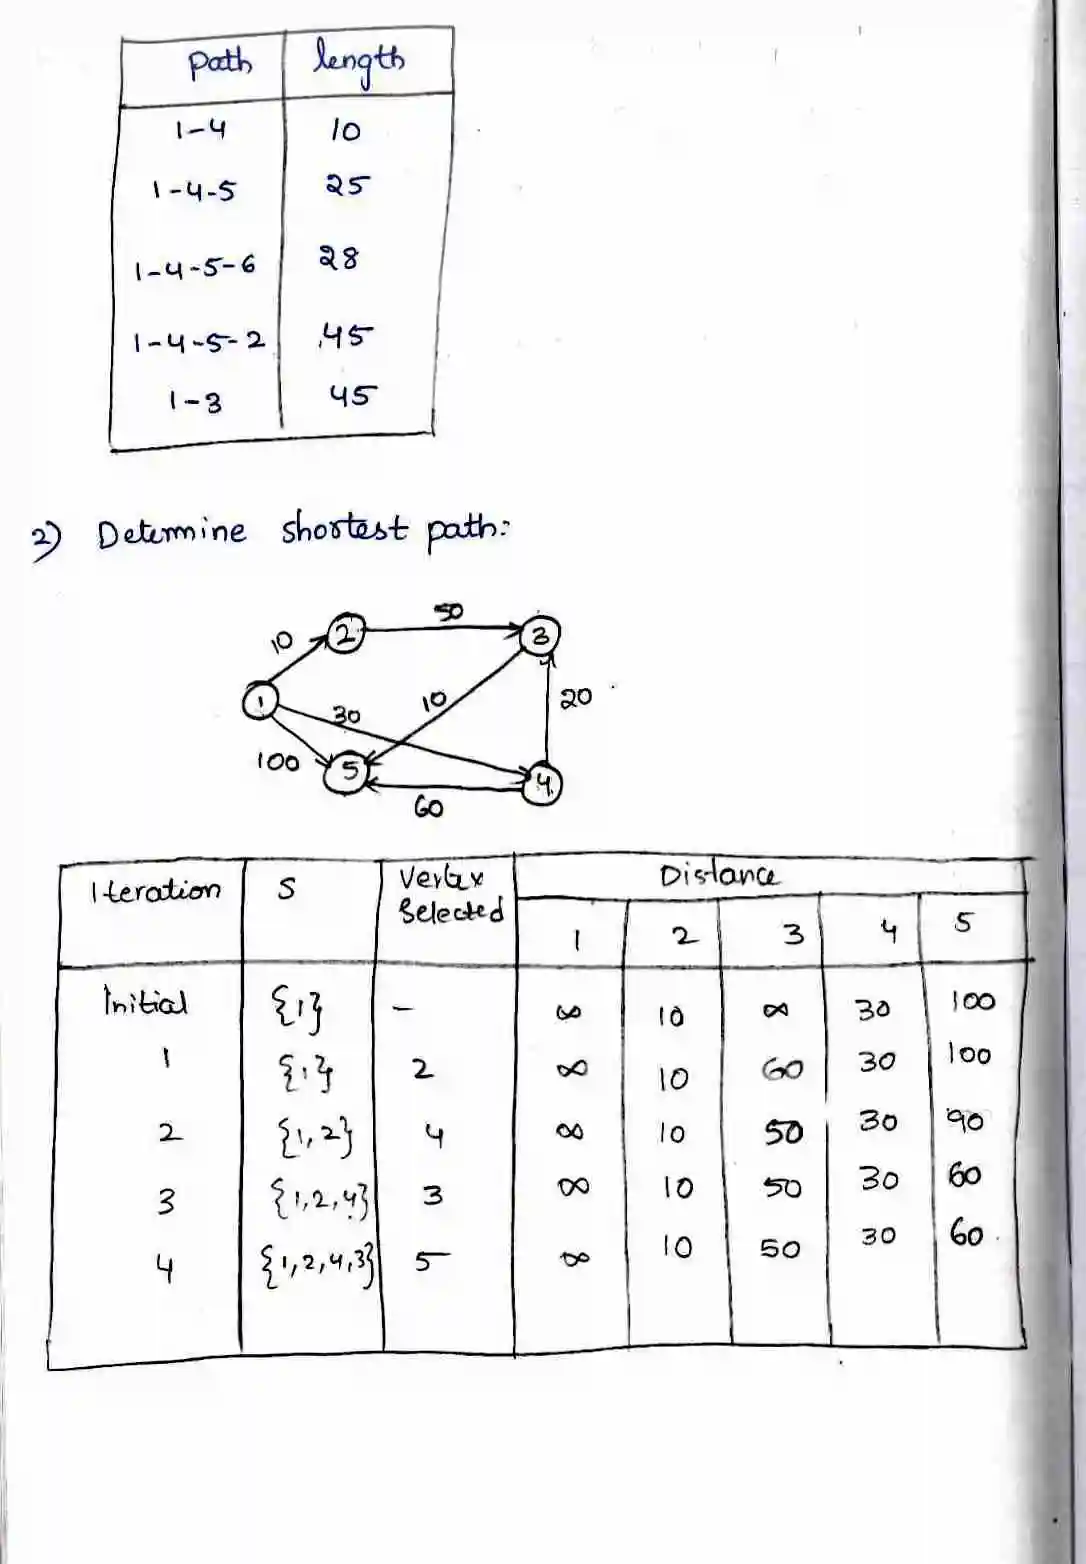 path length
1-4 10
1-4-5 25
1-4-5-6 28
1-4-5-2 45
1-3 45
2) Determine shortest path:
50
10 2 3
1 30 10 20
100 5 4
60
Iteration S Vertex Selected Distance
1 2 3 4 5
Initial {1} - ∞ 10 ∞ 30 100
1 {1} 2 ∞ 10 60 30 100
2 {1,2} 4 ∞ 10 50 30 90
3 {1,2,4} 3 ∞ 10 50 30 60
4 {1,2,4,3} 5 ∞ 10 50 30 60